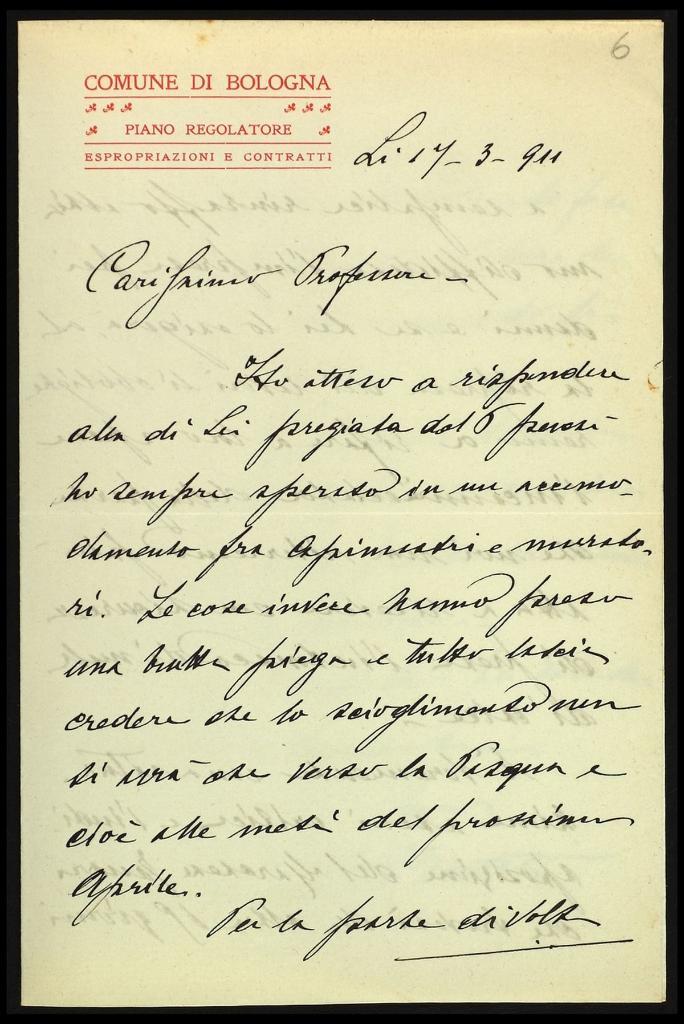 6
COMUNE DI BOLOGNA
PIANO REGOLATORE
ESPROPRIAZIONI E CONTRATTI
Li 17-3-911
Carissimo Professore -
Ho atteso a rispondere
alla di Lei pregiata del 6 perchè
ho sempre sperato in un accomo-
damento fra capimastri e murato-
ri. Le cose invece hanno preso
una brutta piega e tutto lascia
credere che lo scioglimento non
si avrà che verso la Pasqua e
cioè alla metà del prossimo
Aprile.
Per la parte di Volta